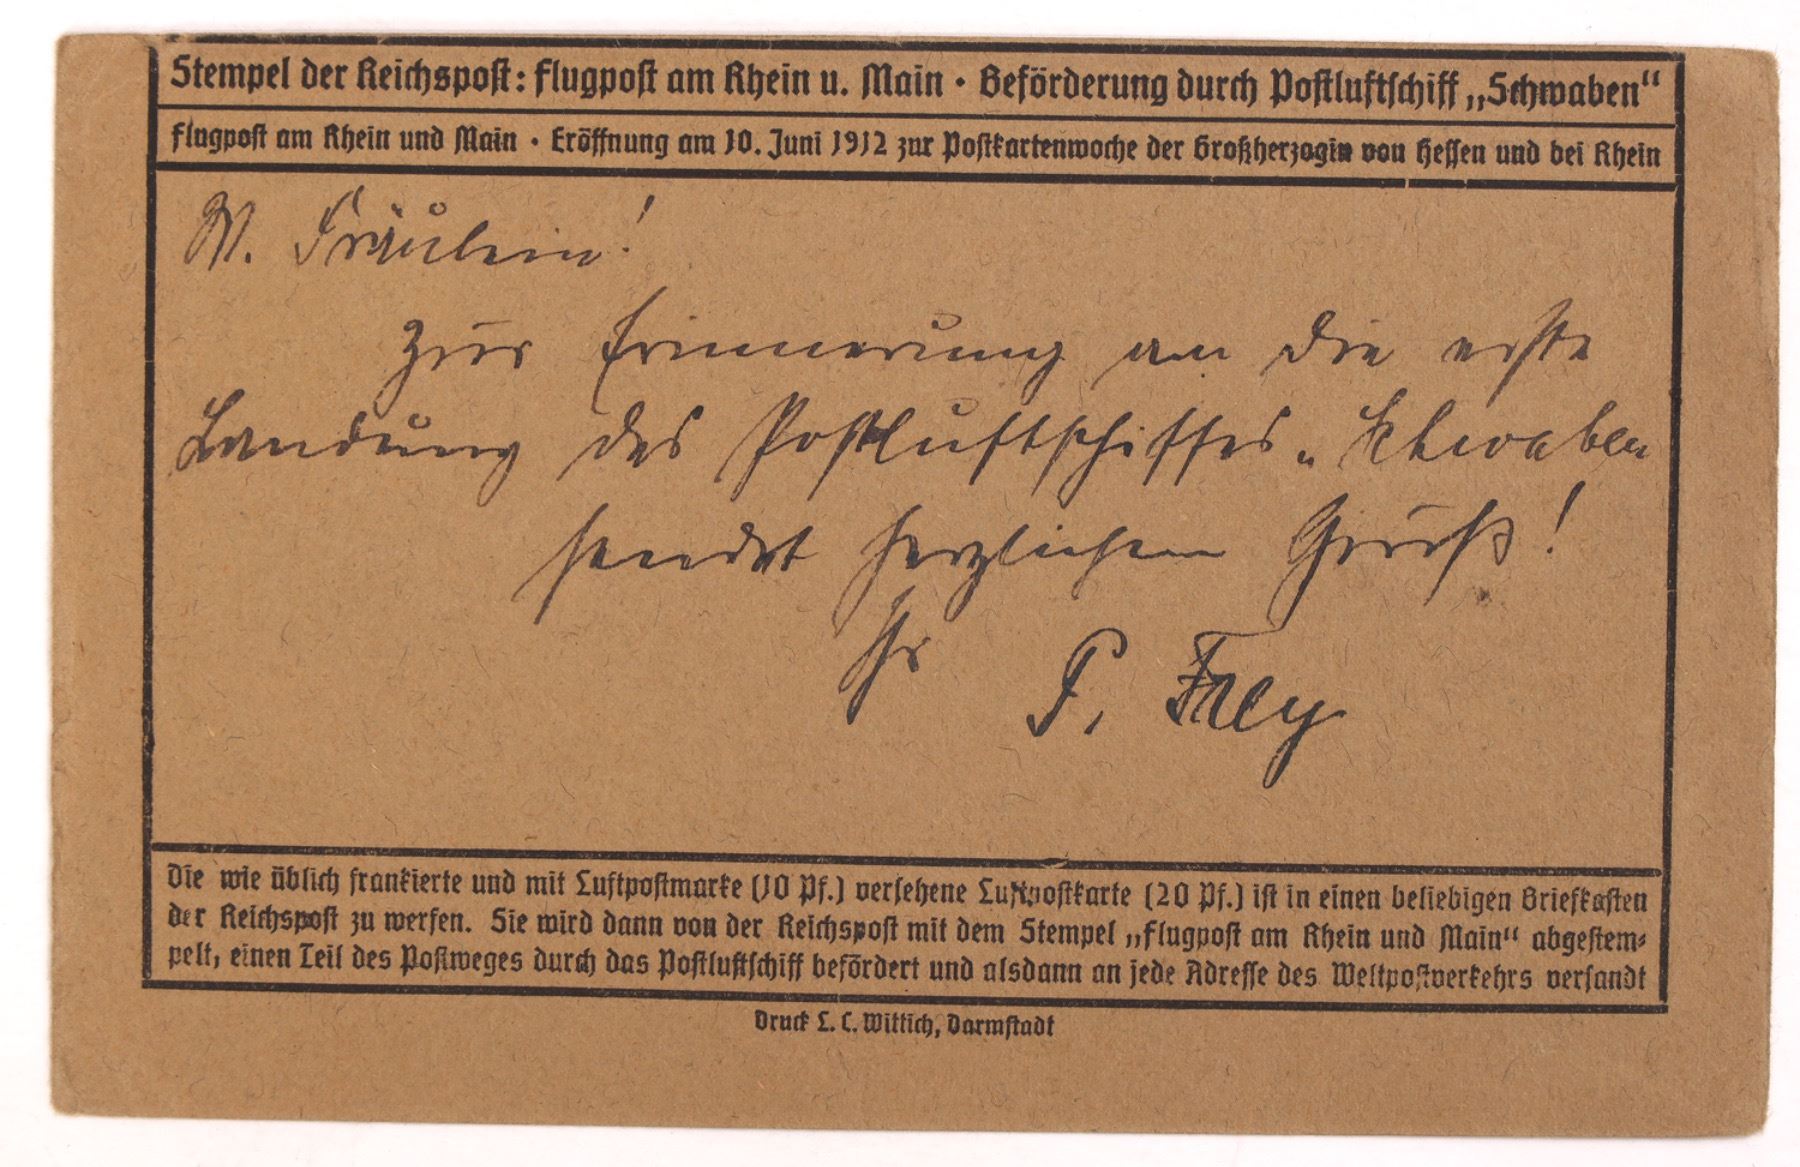 Stempel der Reichspost: Flugpost am Rhein u. Main · Beförderung durch Postluftschiff „Schwaben“
Flugpost am Rhein und Main · Eröffnung am 10. Juni 1912 zur Postkartenwoche der Großherzogin von Hessen und bei Rhein
W. Fräulein!
Zur Erinnerung an die erste
Landung des Postluftschiffes „Schwaben
sendet herzlichen Gruß!
Ihr P. Frey
Die wie üblich frankierte und mit Luftpostmarke (10 Pf.) versehene Luftpostkarte (20 Pf.) ist in einen beliebigen Briefkasten
der Reichspost zu werfen. Sie wird dann von der Reichspost mit dem Stempel „Flugpost am Rhein und Main“ abgestem-
pelt, einen Teil des Postweges durch das Postluftschiff befördert und alsdann an jede Adresse des Weltpostverkehrs versandt
Druck L. C. Wittich, Darmstadt